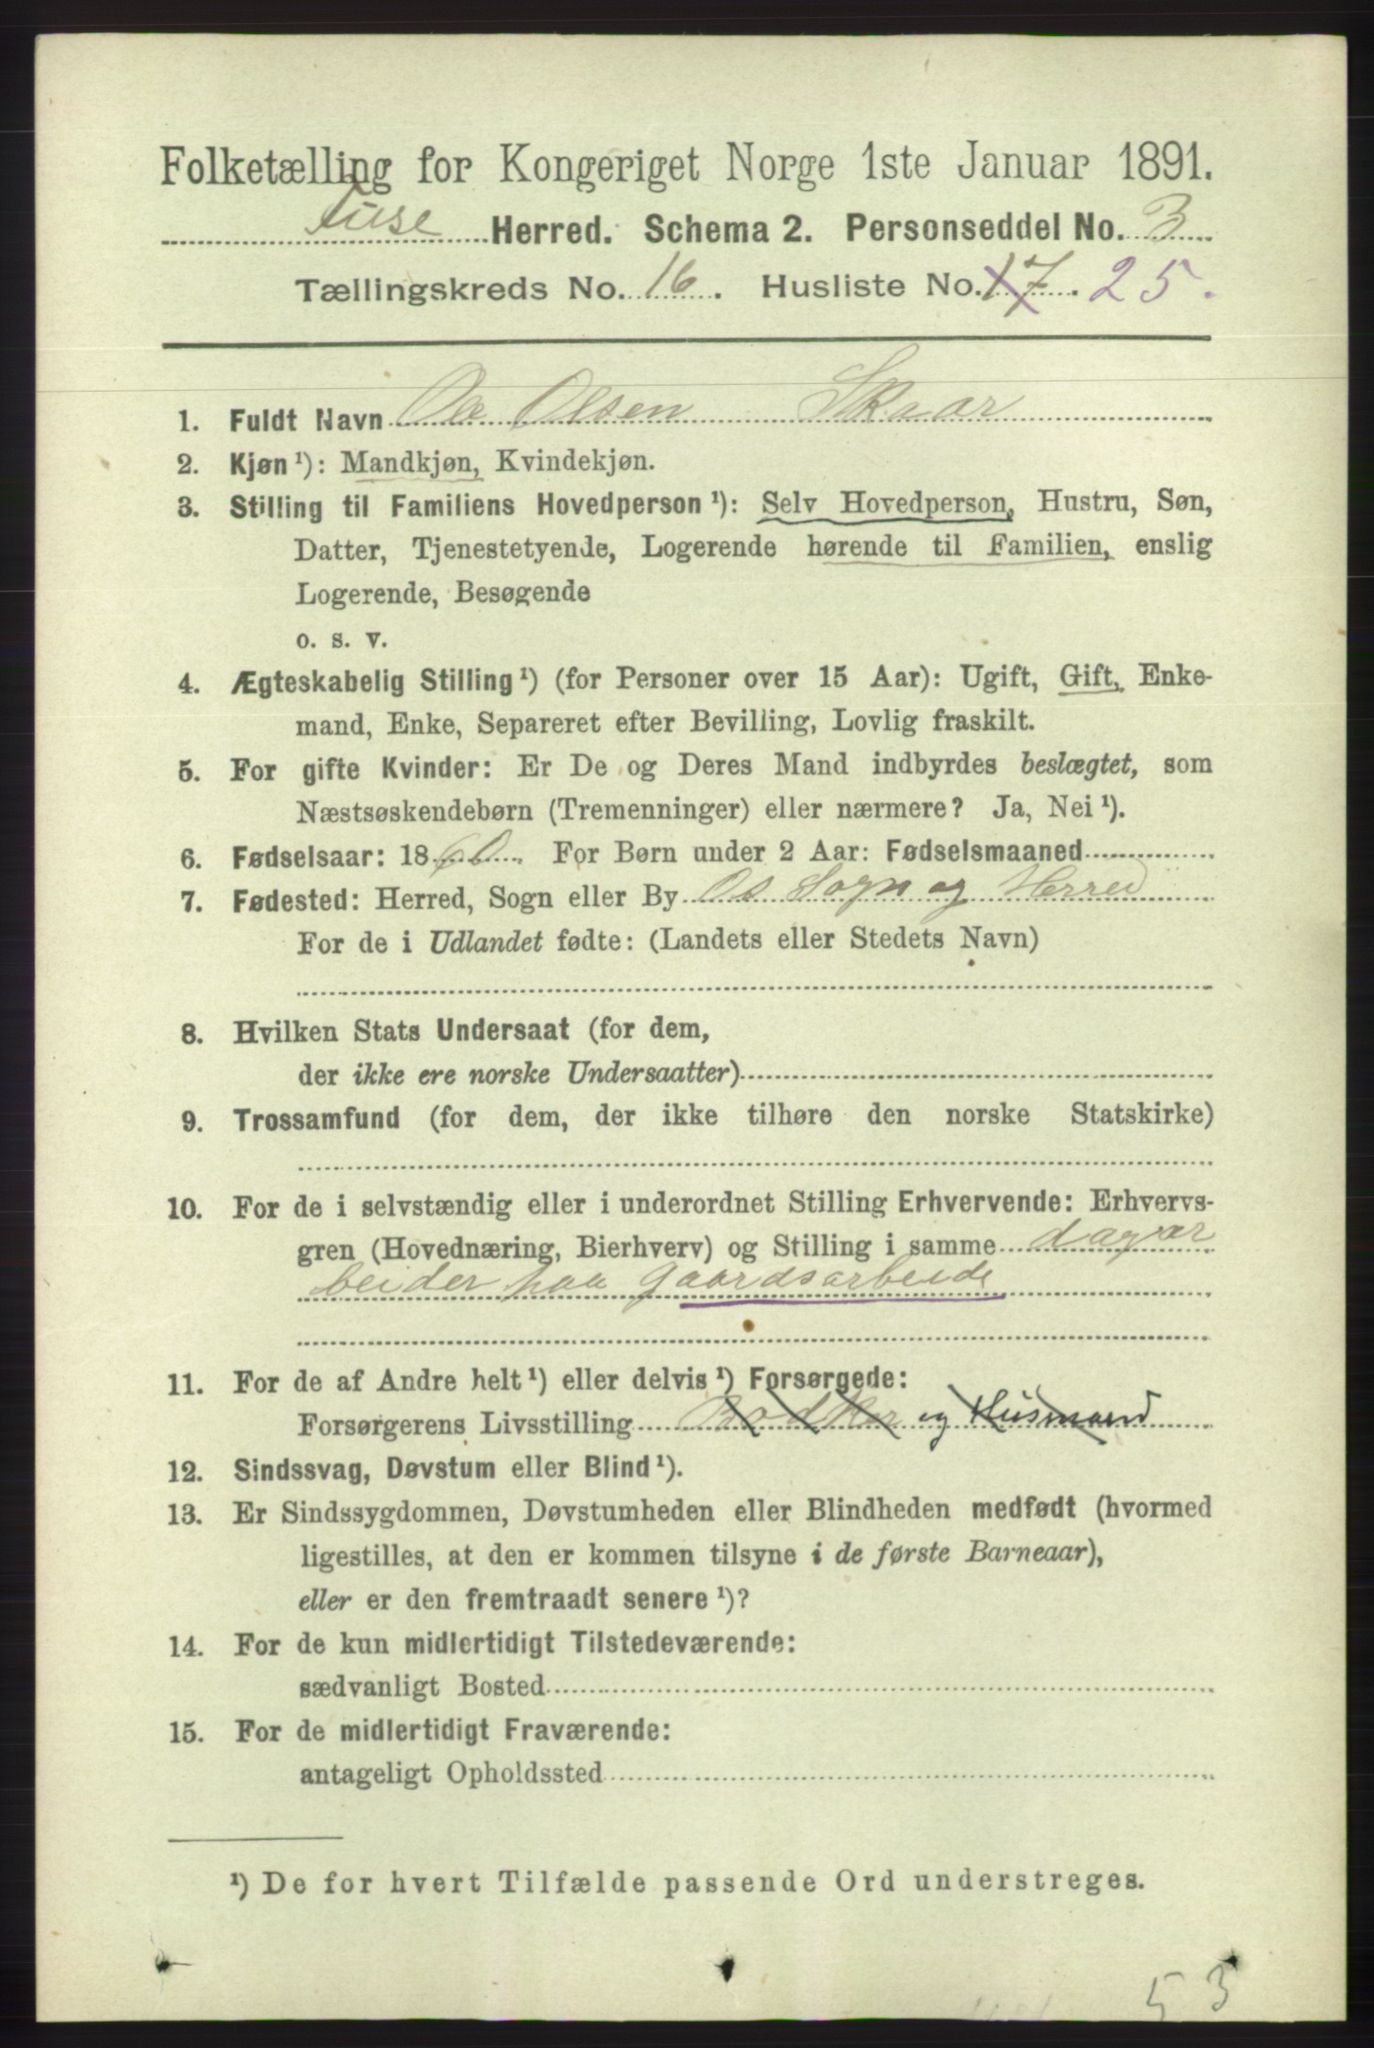 Folketælling for Kongeriget Norge 1ste Januar 1891.
Fuse Herred. Schema 2. Personseddel No. 3
Tællingskreds No. 16. Husliste No. 17. 25.
1. Fuldt Navn Ole Olsen Skaar
2. Kjøn ¹): Mandkjøn, Kvindekjøn.
3. Stilling til Familiens Hovedperson ¹): Selv Hovedperson, Hustru, Søn,
Datter, Tjenestetyende, Logerende hørende til Familien, enslig
Logerende, Besøgende
o. s. v.
4. Ægteskabelig Stilling ¹) (for Personer over 15 Aar): Ugift, Gift, Enke-
mand, Enke, Separeret efter Bevilling, Lovlig fraskilt.
5. For gifte Kvinder: Er De og Deres Mand indbyrdes beslægtet, som
Næstsøskendebørn (Tremenninger) eller nærmere? Ja, Nei ¹).
6. Fødselsaar: 1860. For Børn under 2 Aar: Fødselsmaaned
7. Fødested: Herred, Sogn eller By Os Sogn og Herred
For de i Udlandet fødte: (Landets eller Stedets Navn)
8. Hvilken Stats Undersaat (for dem,
der ikke ere norske Undersaatter)
9. Trossamfund (for dem, der ikke tilhøre den norske Statskirke)
10. For de i selvstændig eller i underordnet Stilling Erhvervende: Erhvervs-
gren (Hovednæring, Bierhverv) og Stilling i samme dagar
beider paa Gaardsarbeide
11. For de af Andre helt ¹) eller delvis ¹) Forsørgede:
Forsørgerens Livsstilling Bødker og Husmand
12. Sindssvag, Døvstum eller Blind ¹).
13. Er Sindssygdommen, Døvstumheden eller Blindheden medfødt (hvormed
ligestilles, at den er kommen tilsyne i de første Barneaar),
eller er den fremtraadt senere ¹)?
14. For de kun midlertidigt Tilstedeværende:
sædvanligt Bosted
15. For de midlertidigt Fraværende:
antageligt Opholdssted
¹) De for hvert Tilfælde passende Ord understreges.
53